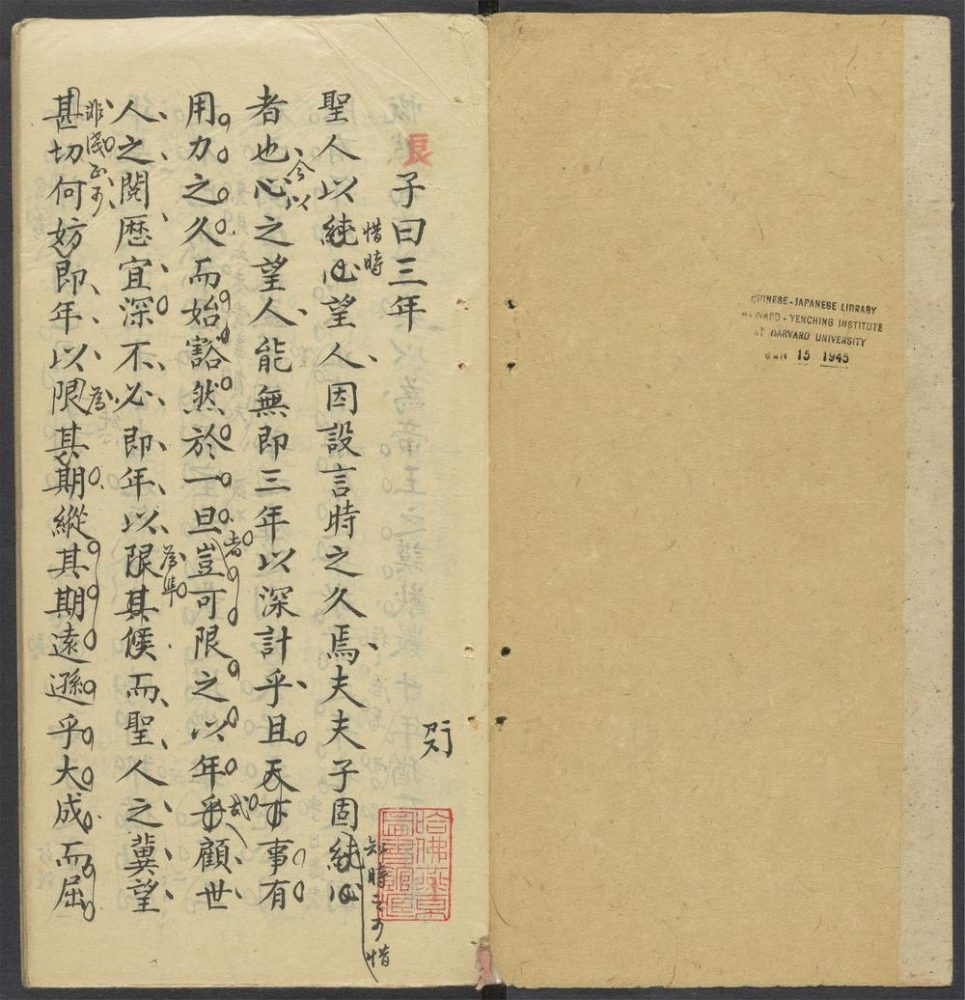 子曰三年
聖人以純心望人因設言時之久焉夫夫子固純心
惜時
知時之可惜
者也心之望人能無即三年以深計乎且天下事有
今以
用力之久而始豁然於一旦豈可限之以年乎顧世
者
哉
人之閱歷宜深不必即年以限其候而聖人之冀望
為準
甚切何妨即年以限其期縱其期遠遜乎大成而屈
為
CHINESE-JAPANESE LIBRARY
HARVARD-YENCHING INSTITUTE
AT HARVARD UNIVERSITY
JAN 15 1945